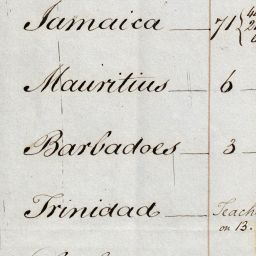 Jamaica — 71
Mauritius — 6 —
Barbadoes — 3 —
Trinidad — Teach
on 13.